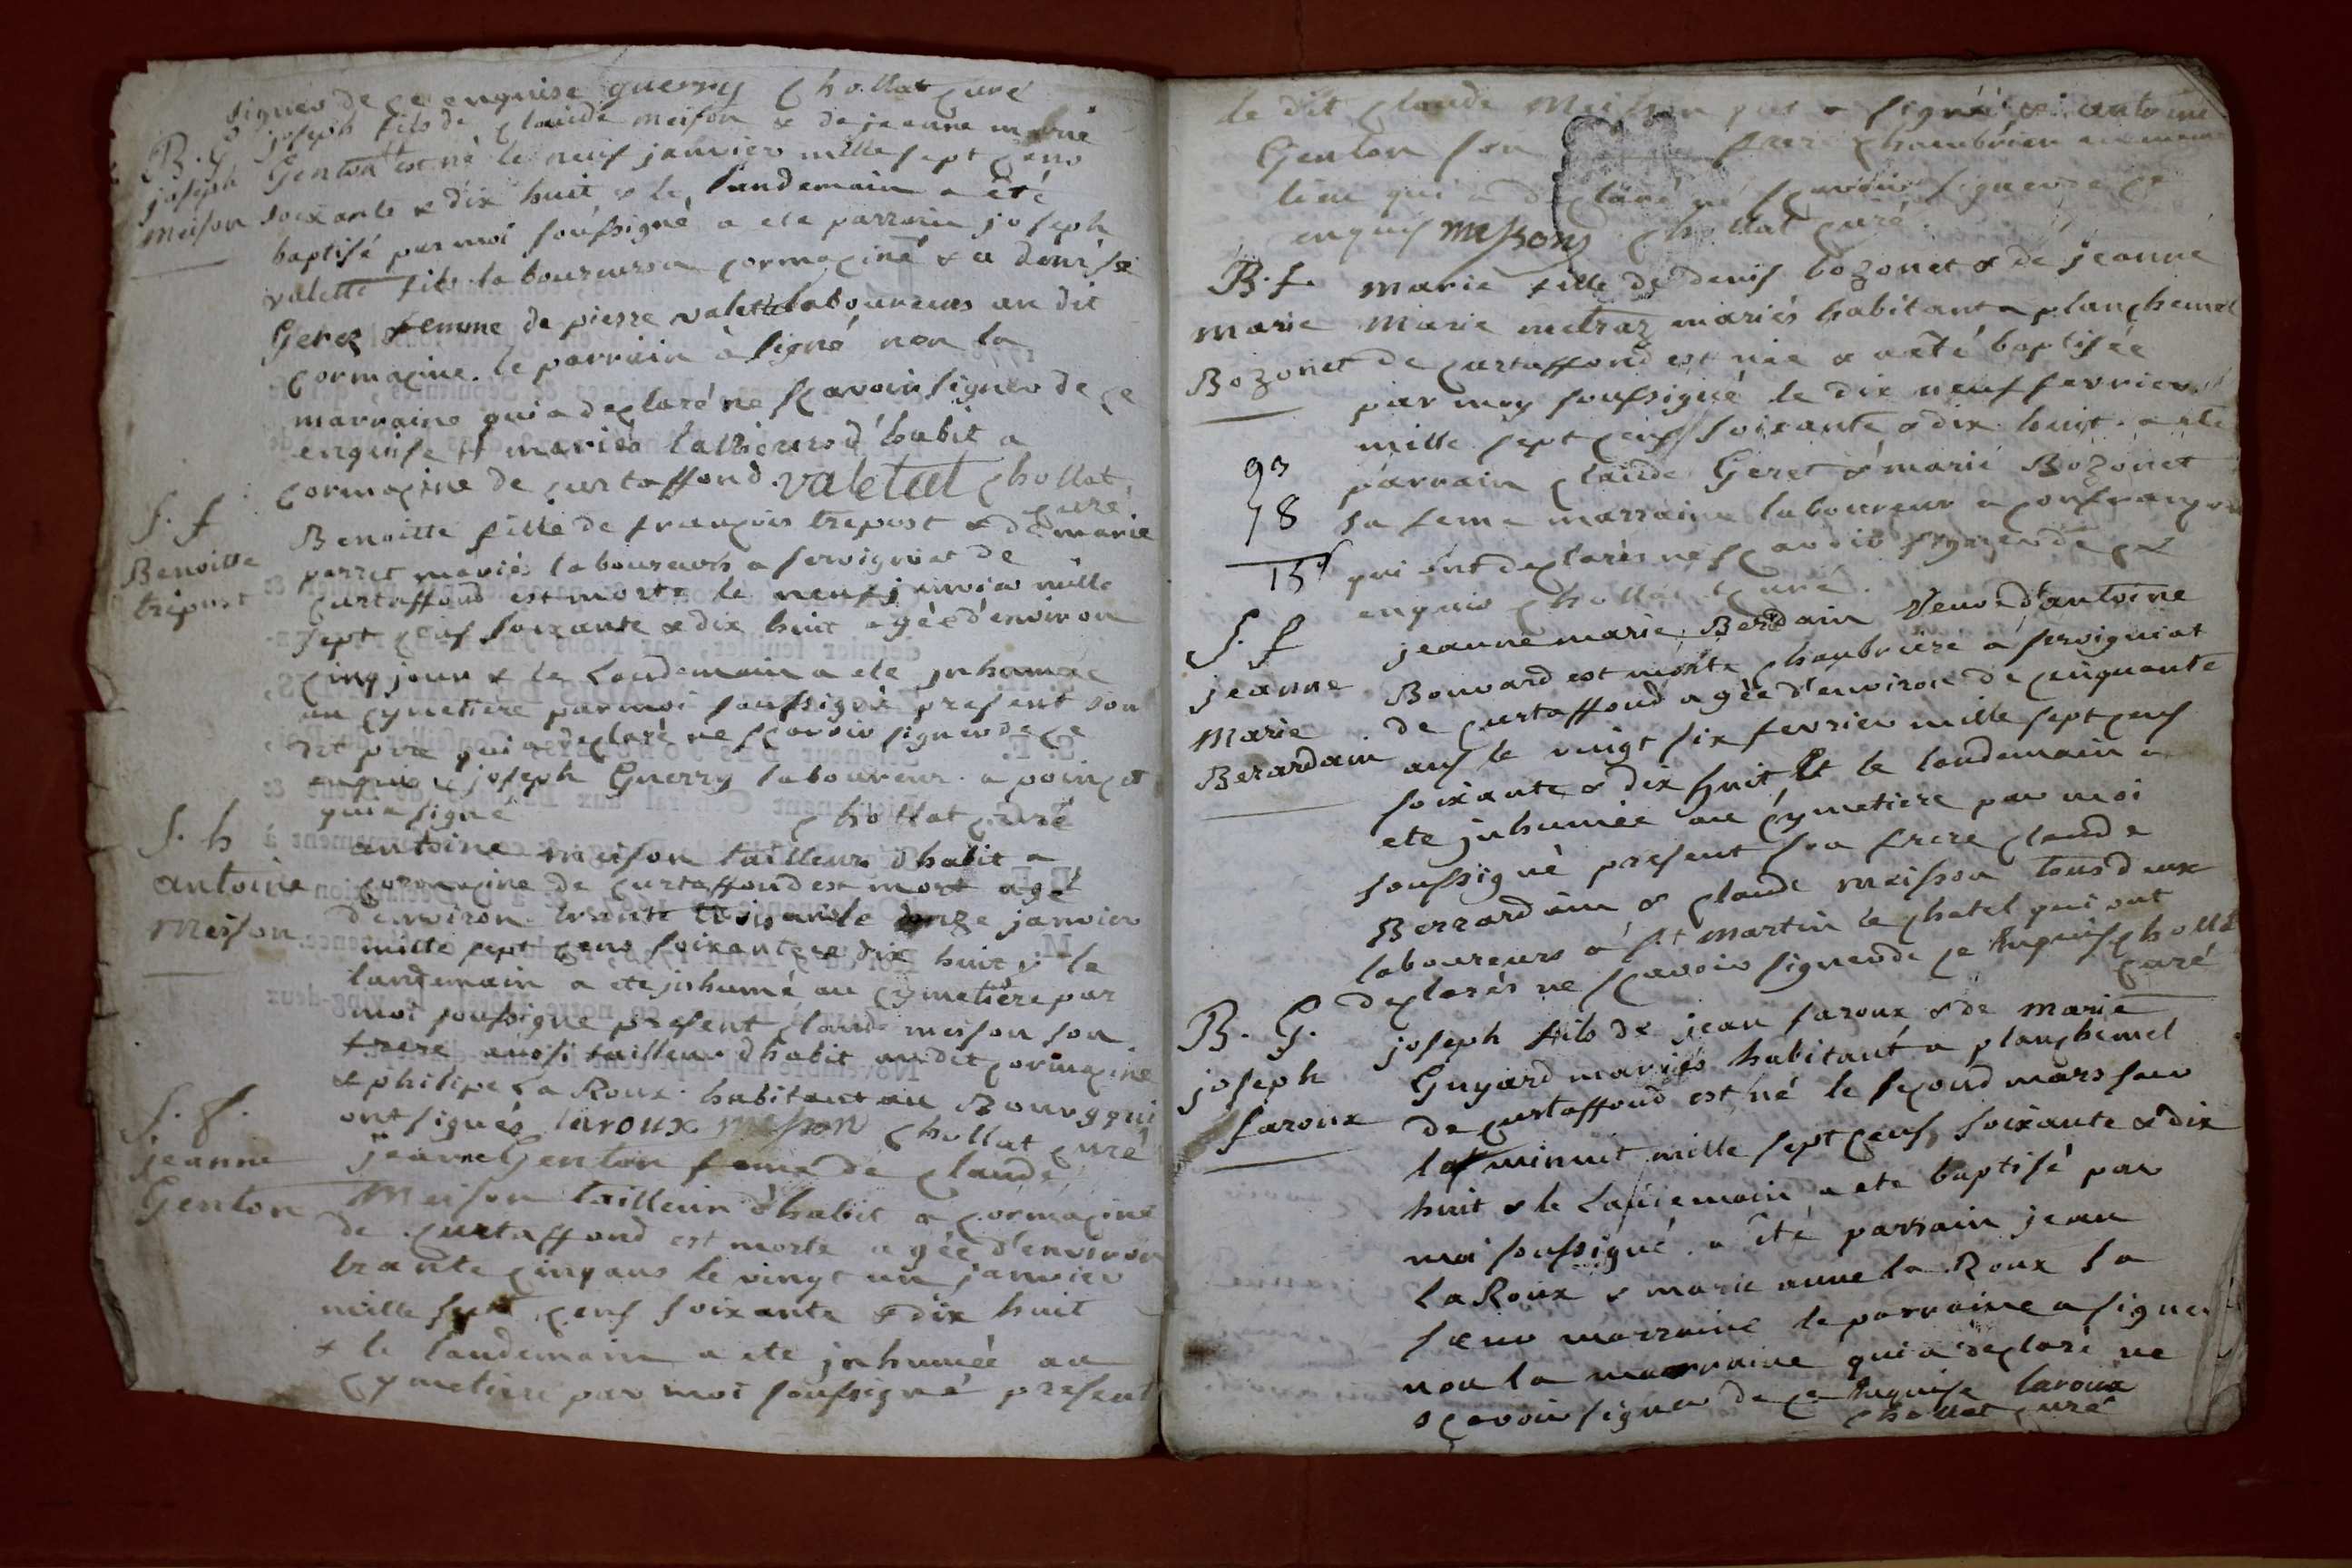 signer de ce enquise guerry Chollat curé
B. G. joseph fils de Claude meison & de jeanne marie
joseph Genton est né le neuf janvier mille sept cens
meison soixante & dix huit & le landemain a été
baptisé par moi soussigné a ete parrain joseph
valette fils laboureurs a cormacine & a denise
Gerez femme de pierre valette laboureurs au dit
cormacine. le parrain à signé non la
marraine qui a declaré ne scavoir signer de ce
enquise mariés tallieurs d'habit a
cormacine de curtaffond. valetat Chollat
curé
S. f Benoitte fille de francois trepost & de marie
Benoitte perret mariés laboureurs a servigniat de
trepost curtaffond est morte le neuf janvier mille
sept cens soixante & dix huit agée d'environ
cinq jour & le landemain a ete inhumée
au cymetiere par moi soussigné present son
dit pere qui a declaré ne scavoir signer de ce
enquis & joseph Guerry laboureur a
qui a signé Chollat curé
S. h antoine meison tailleurs dhabit a
antoine cormacine de curtaffond est mort agé
Meison d'environ trante trois ans le onze janvier
mille sept cens soixante & dix huit & le
landemain a ete inhumé au cymetiere par
moi soussigne present Claude meison son
frere aussi tailleur dhabit au dit cormacine
& philipe La Roux habitant au Bourg qui
ont signés laroux meson Chollat curé
S. f. jeanne Genton feme de Claude
jeanne Meison tailleur d'habit a cormacine
Genton de curtaffond est morte agée d'environ
trante cinq ans le vingt un janvier
mille sept cens soixante & dix huit
& le landemain a ete inhumée au
cymetiere par moi soussigné present
le dit Claude Meison qui a signé & antoine
Genton son frere
lieu qui a declaré ne scavoir signer de ce
enquis messon Chollat curé
B. f. marie fille de denis bozonet & de jeanne
marie Marie metraz mariés habitant a planchemel
Bozonet de curtaffond est née & a été baptisée
par moy soussigné le dix neuf fevrier
mille sept cens soixante & dix huit. a ete
93 parrain Claude Geret & marie Bozonet
78 sa feme marraine laboureur a confrancon
15 qui ont declarés ne scavoir signer de ce
enquis Chollat curé.
S. f jeanne marie Berdain veuve d'antoine
jeanne Bouvard est morte chambriere a servigniat
Marie de curtaffond agée d'environ de cinquante
Berardain ans le vingt six fevrier mille sept cens
soixante & dix huit, et le landemain a
ete inhumée au cymetiere par moi
soussigné present son frere Claude
Berrardain & Claude meisson tous deux
laboureurs a st martin le chatel qui ont
declarés ne scavoir signer de ce enquis Chollat
curé
B. G. joseph fils de jean laroux & de marie
joseph Guyard mariés habitant a planchemel
laroux de curtaffond est né le second mars sur
la minuit mille sept cens soixante & dix
huit & le landemain a ete baptisé par
moi soussigné. a été parrain jean
La Roux & marie anne la Roux sa
sœur marraine le parraine a signer
non la marraine qui a declaré ne
scavoir signer de ce enquise laroux
Chollat curé